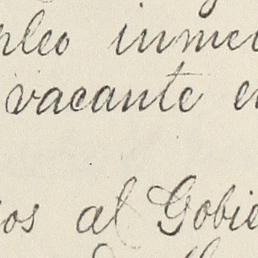 pleo inme
vacante e
os al Gobie